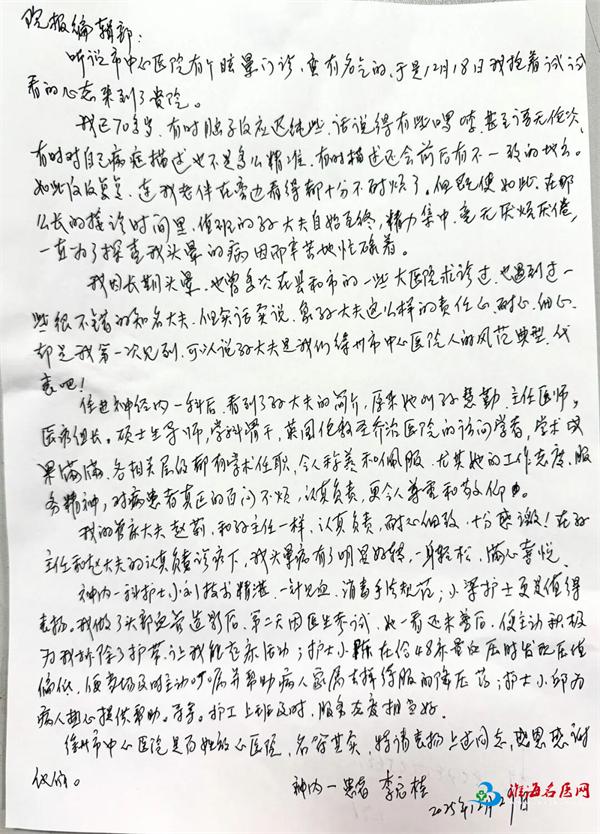 院报编辑部：
听说市中心医院有个眩晕门诊，蛮有名气的，于是12月18日我抱着试试
看的心态来到了贵院。
我已70多岁，有时脑子反应迟钝些，话说得有些啰嗦，甚至语无伦次，
有时对自己病症描述也不是多么精准，有时描述还会前后有不一致的地方。
如此反反复复，连我老伴在旁边看得都十分不耐烦了。但既使如此，在那
么长的接诊时间里，值班的孙大夫自始至终，精力集中，毫无厌烦厌倦，
一直为了探查我头晕的病因而辛苦地忙碌着。
我因长期头晕，也曾多次在县和市的一些大医院求诊过，也遇到过一
些很不错的知名大夫，但实话实说，象孙大夫这么样的责任心、耐心、细心，
却是我第一次见到，可以说孙大夫是我们徐州市中心医院人的风范典型，代
表吧！
住进神经内一科后，看到了孙大夫的简介，原来她叫孙慧勤，主任医师，
医疗组长。硕士生导师，学科骨干，英国伦敦圣乔治医院的访问学者，学术成
果满满，各相关层级都有学术任职，令人称羡和佩服，尤其她的工作态度、服
务精神，对病患者真正的百问不烦，认真负责，更令人尊重和敬仰。
我的管床大夫赵莉，和孙主任一样，认真负责，耐心细致，十分感激！在孙
主任和赵大夫的认真负责诊疗下，我头晕病有了明显好转，一身轻松，满心喜悦。
神内一科护士小刘技术精湛，一针见血，消毒手法规范；小梁护士更是值得
表扬，我做了头部血管造影后，第二天因医生考试，她一看还未答后，便主动积极
为我拆除了护带，让我能起床活动；护士小陈在给48床量血压时发现压值
偏低，便当场及时主动叮嘱并帮助病人家属去掉待服的降压药；护士小邱为
病人热心提供帮助。等等。护工上班及时，服务态度相当好。
徐州市中心医院是百姓放心医院，名符其实，特请表扬上述同志，感恩感谢
他们。
神内一患者 李宏桂
2025年12月29日
淮海名医网